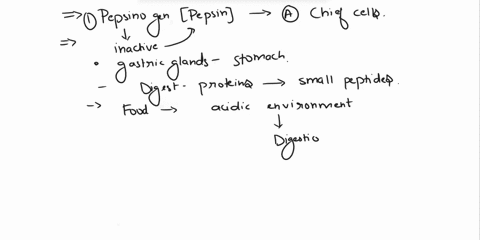 ⇒ ① Pepsinogen [Pepsin] → Ⓐ Chief cells.
⇒ ↓ inactive
• gastric glands - stomach.
- Digest - proteins → small peptides.
→ Food → acidic environment
↓
Digestio